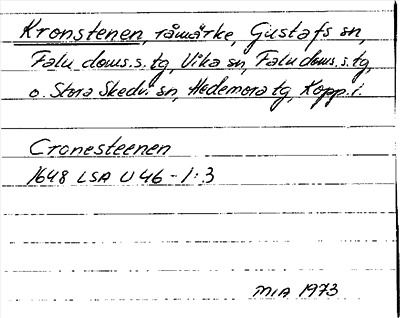 Kronstenen, råmärke, Gustafs sn,
Falu doms.s. tg, Vika sn, Falu doms.s. tg,
o. Stora Skedvi sn, Hedemora tg, Kopp. l.
Cronesteenen
1648 LSA U 46 - 1:3
MIA 1973